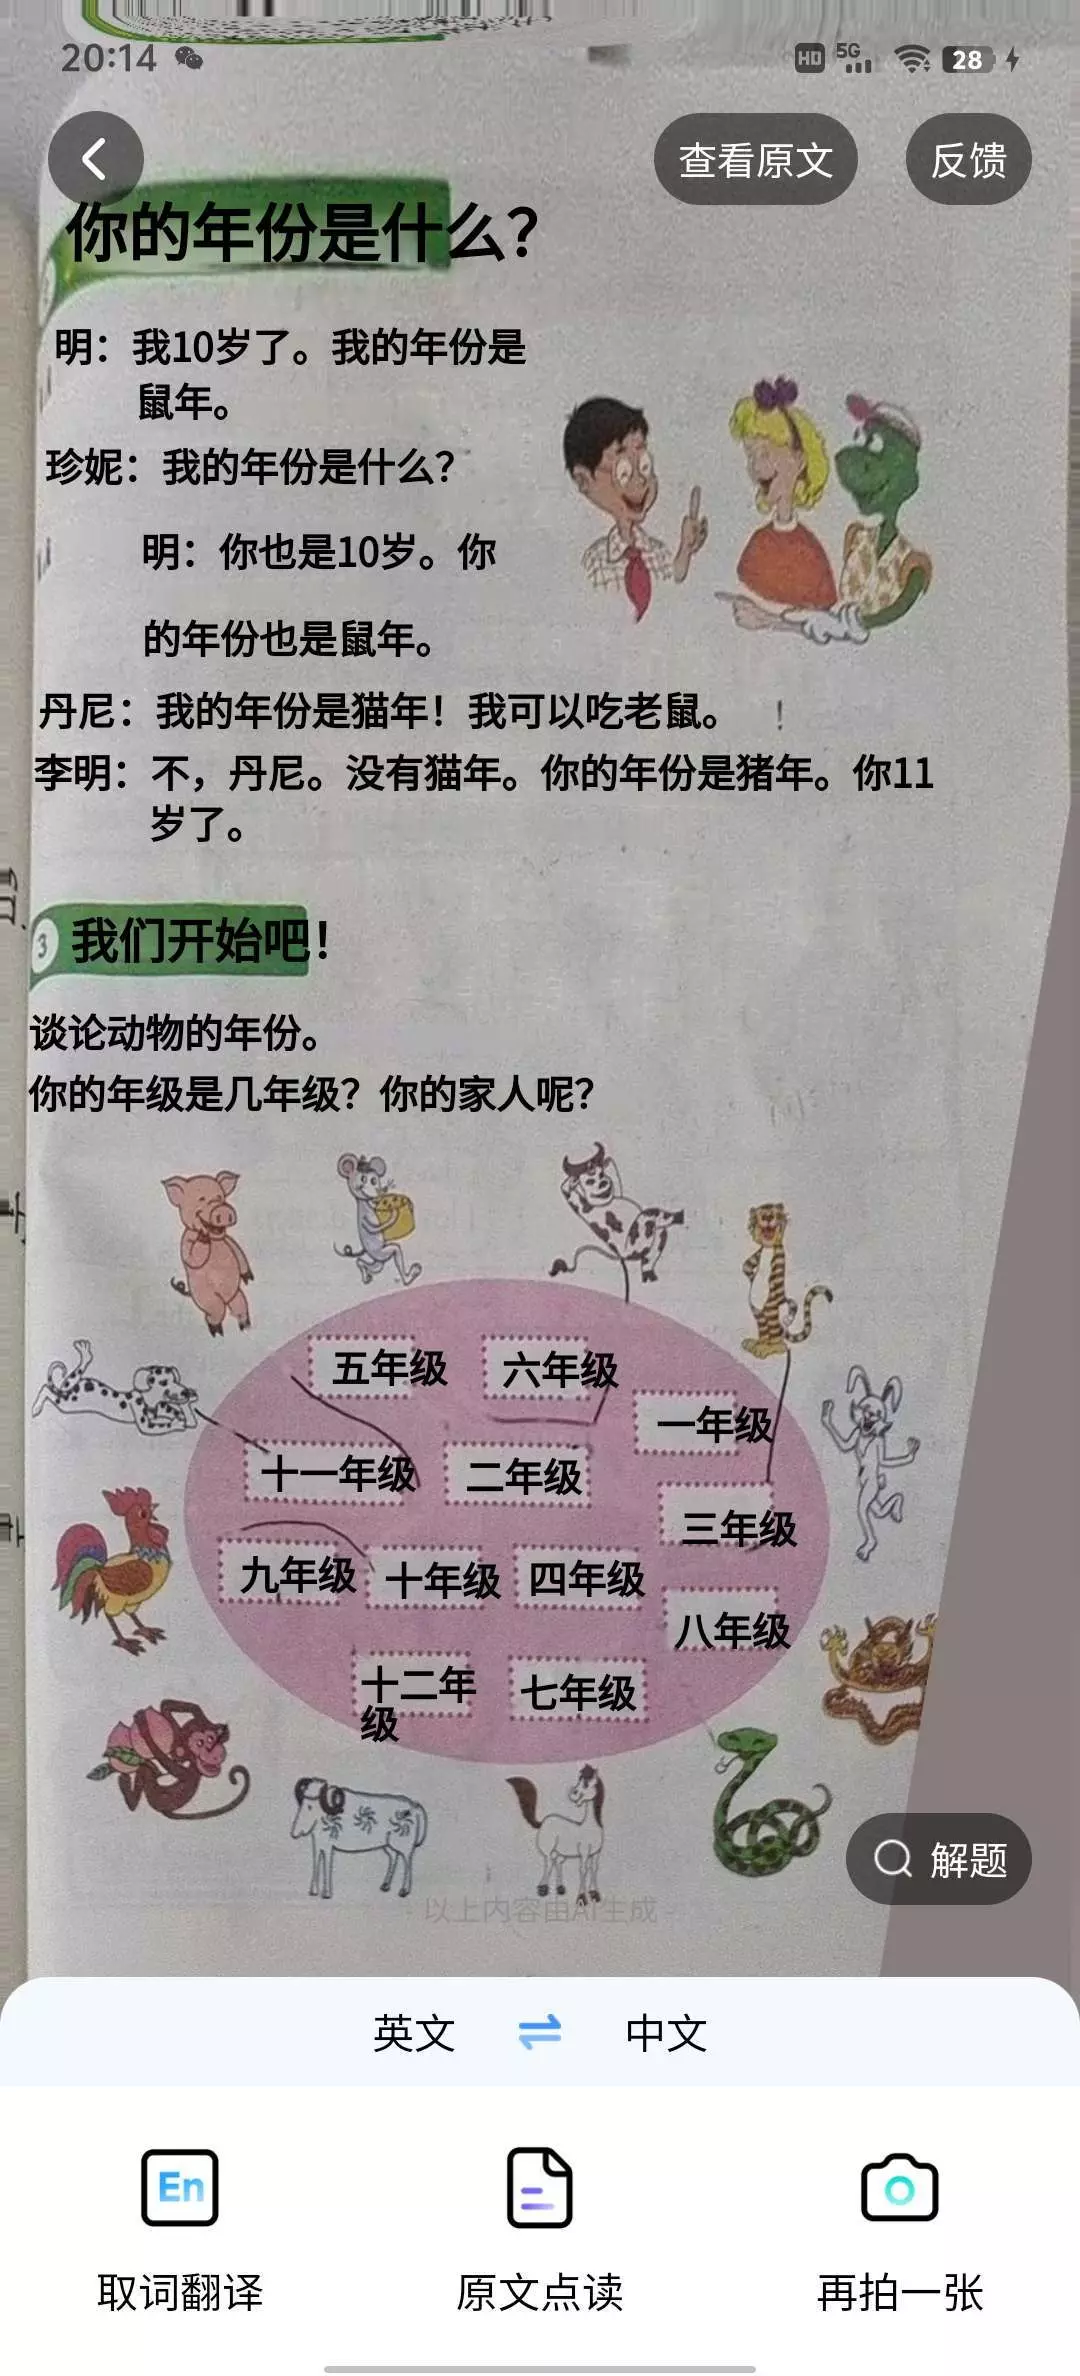 20:14
HD 5G 28
查看原文
反馈
你的年份是什么?
明：我10岁了。我的年份是
鼠年。
珍妮：我的年份是什么?
明：你也是10岁。你
的年份也是鼠年。
丹尼：我的年份是猫年！我可以吃老鼠。 !
李明：不，丹尼。没有猫年。你的年份是猪年。你11
岁了。
3 我们开始吧！
谈论动物的年份。
你的年级是几年级？你的家人呢?
五年级 六年级
一年级
十一年级 二年级
三年级
九年级 十年级 四年级
八年级
十二年
级
七年级
解题
以上内容由AI生成
英文 中文
En
取词翻译 原文点读 再拍一张